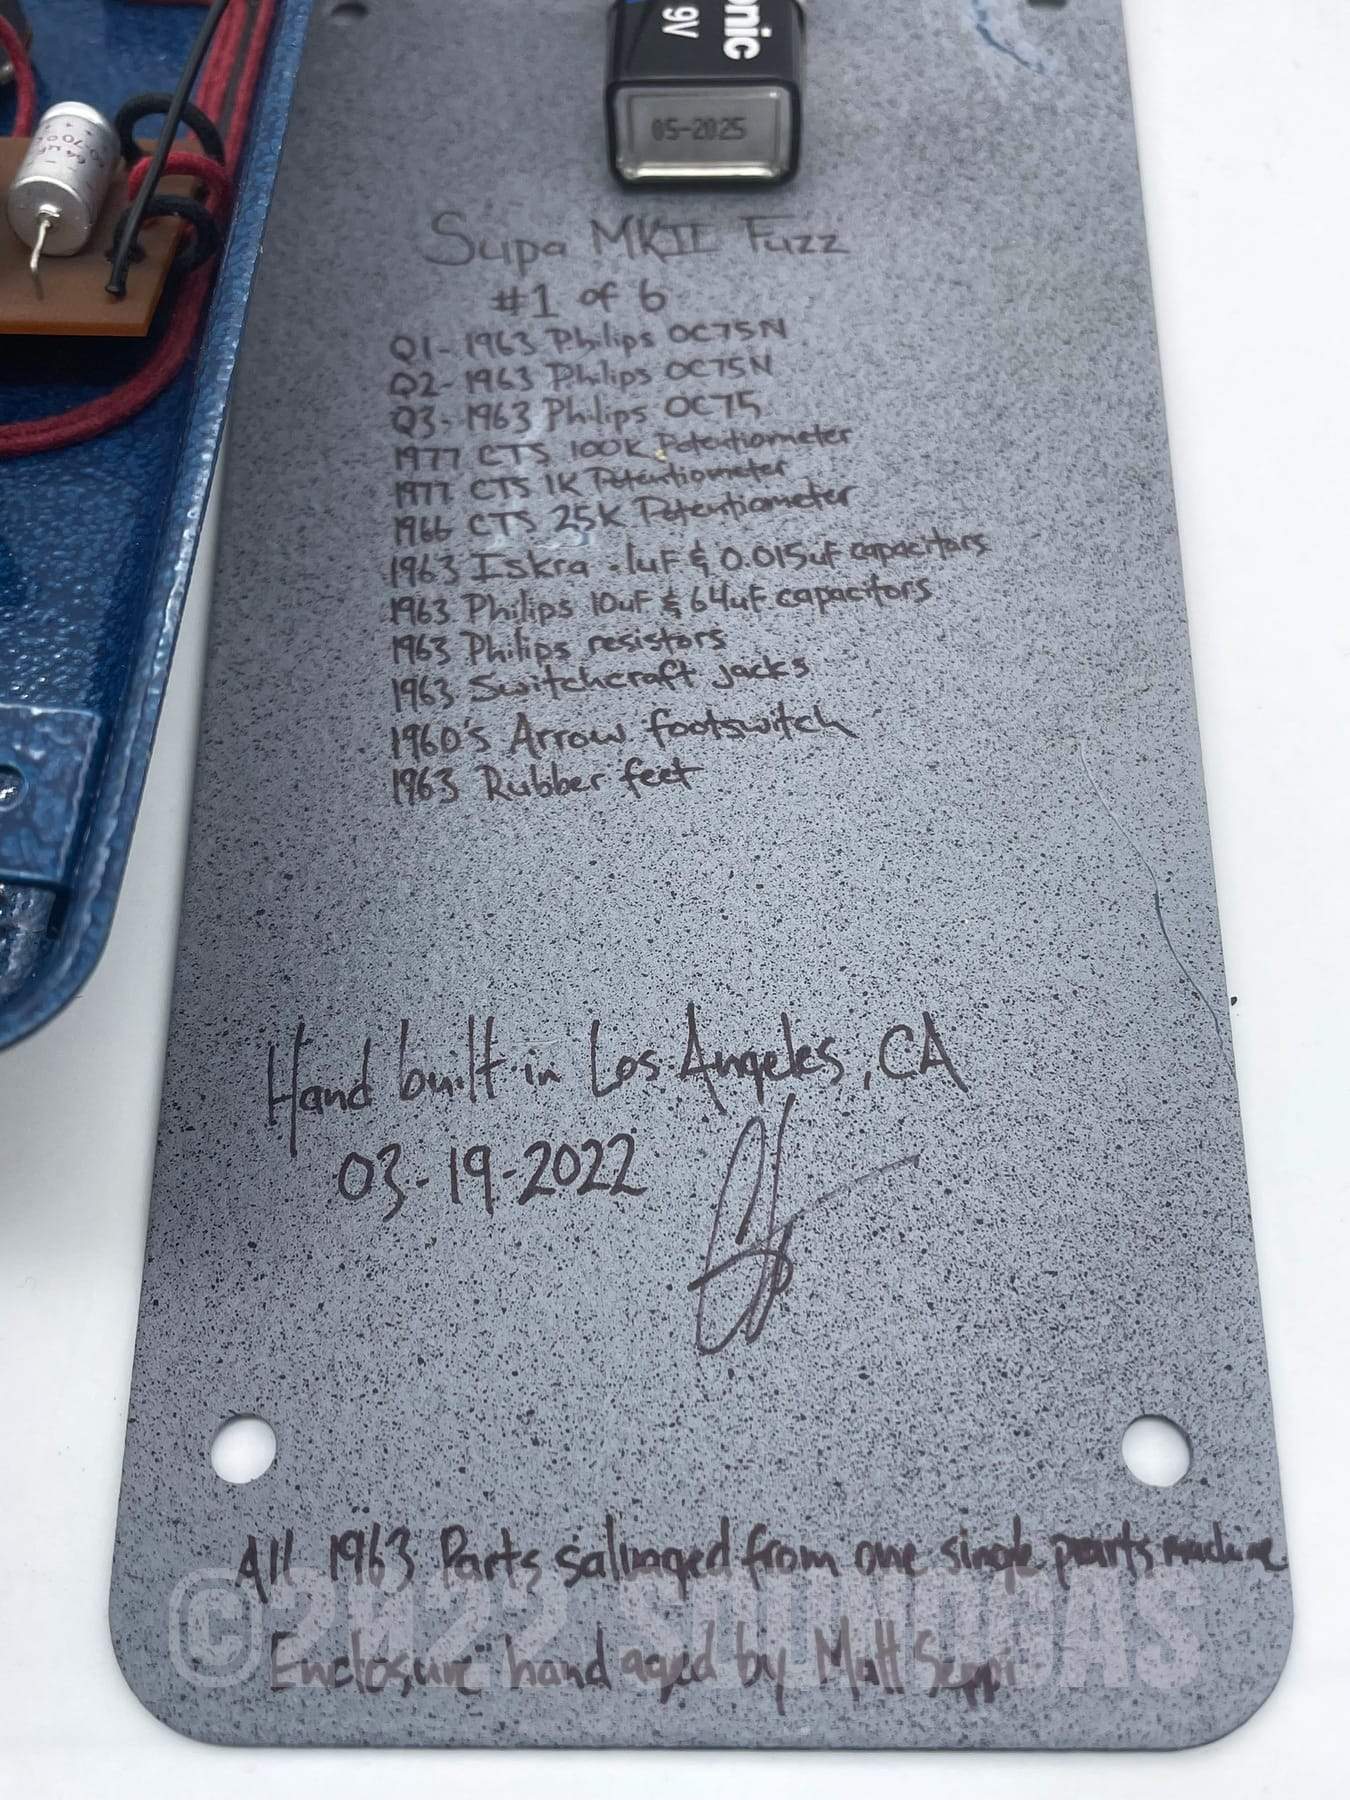 onic
9V
05-2025
64µF
Supa MKII Fuzz
#1 of 6
Q1- 1963 Philips OC75N
Q2- 1963 Philips OC75N
Q3- 1963 Philips OC75
1977 CTS 100K Potentiometer
1977 CTS 1K Potentiometer
1966 CTS 25K Potentiometer
1963 Iskra .1uF & 0.015uF capacitors
1963 Philips 10uF & 64uF capacitors
1963 Philips resistors
1963 Switchcraft jacks
1960's Arrow footswitch
1963 Rubber feet
Hand built in Los Angeles, CA
03-19-2022
All 1963 Parts salvaged from one single parts machine
©2022 SOUNDGAS
Enclosure hand aged by Matt Seppi